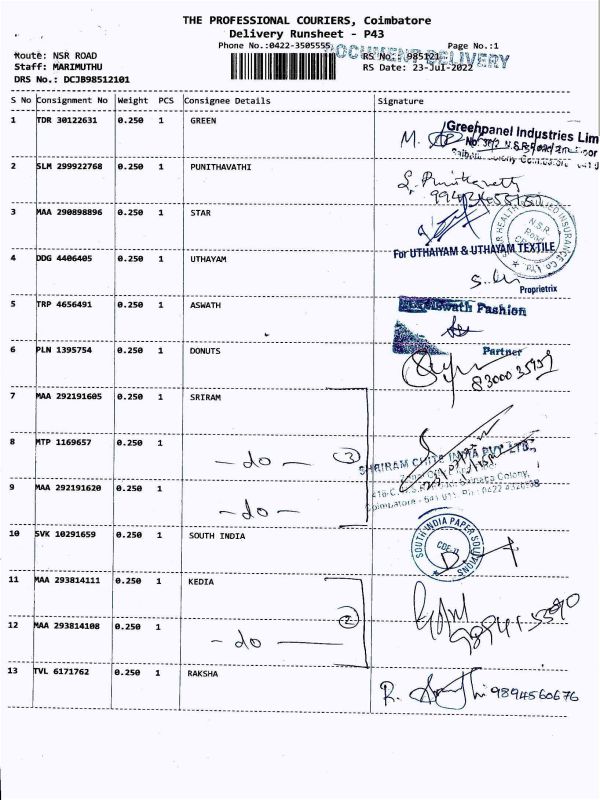 THE PROFESSIONAL COURIERS, Coimbatore
Delivery Runsheet - P43
Phone No.:0422-3505555 Page No.:1
DOCUMENT DELIVERY
Route: NSR ROAD RS No.: 985121
Staff: MARIMUTHU RS Date: 23-Jul-2022
DRS No.: DCJB98512101
S No Consignment No Weight PCS Consignee Details Signature
1 TDR 30122631 0.250 1 GREEN
Greenpanel Industries Lim
2 SLM 299922768 0.250 1 PUNITHAVATHI
3 MAA 290898896 0.250 1 STAR
N.S.R. Road
4 DDG 4406405 0.250 1 UTHAYAM
For UTHAIYAM & UTHAYAM TEXTILE
Proprietrix
5 TRP 4656491 0.250 1 ASWATH
Aswath Fashion
Partner
6 PLN 1395754 0.250 1 DONUTS
7 MAA 292191605 0.250 1 SRIRAM
8 MTP 1169657 0.250 1
- do - 3
SHRIRAM CHITS INDIA PVT LTD.,
9 MAA 292191620 0.250 1
- do -
10 SVK 10291659 0.250 1 SOUTH INDIA
SOUTH INDIA PAPER SOLUTIONS
11 MAA 293814111 0.250 1 KEDIA
12 MAA 293814108 0.250 1
- do - 2
13 TVL 6171762 0.250 1 RAKSHA
9894560676